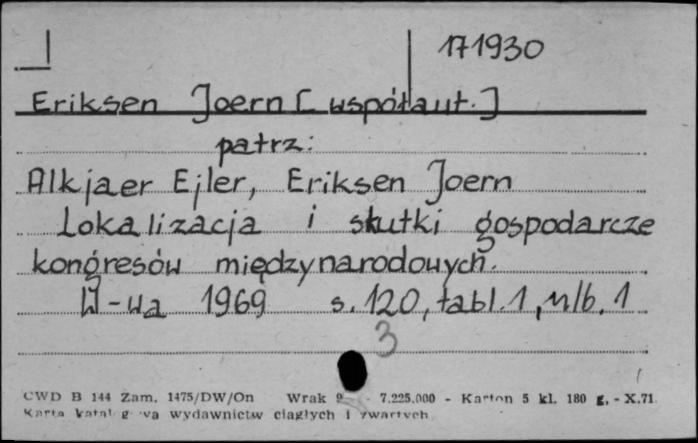 171930
Eriksen Joern [współaut.]
patrz:
Alkjaer Ejler, Eriksen Joern
Lokalizacja i skutki gospodarcze
kongresów międzynarodowych.
W-wa 1969 s. 120, tabl. 1, nlb. 1
3
CWD B 144 Zam. 1475/DW/On Wrak 7.225.000 - Karton 5 kl. 180 g, - X.71.
Karta katalogowa wydawnictw ciągłych i zwartych